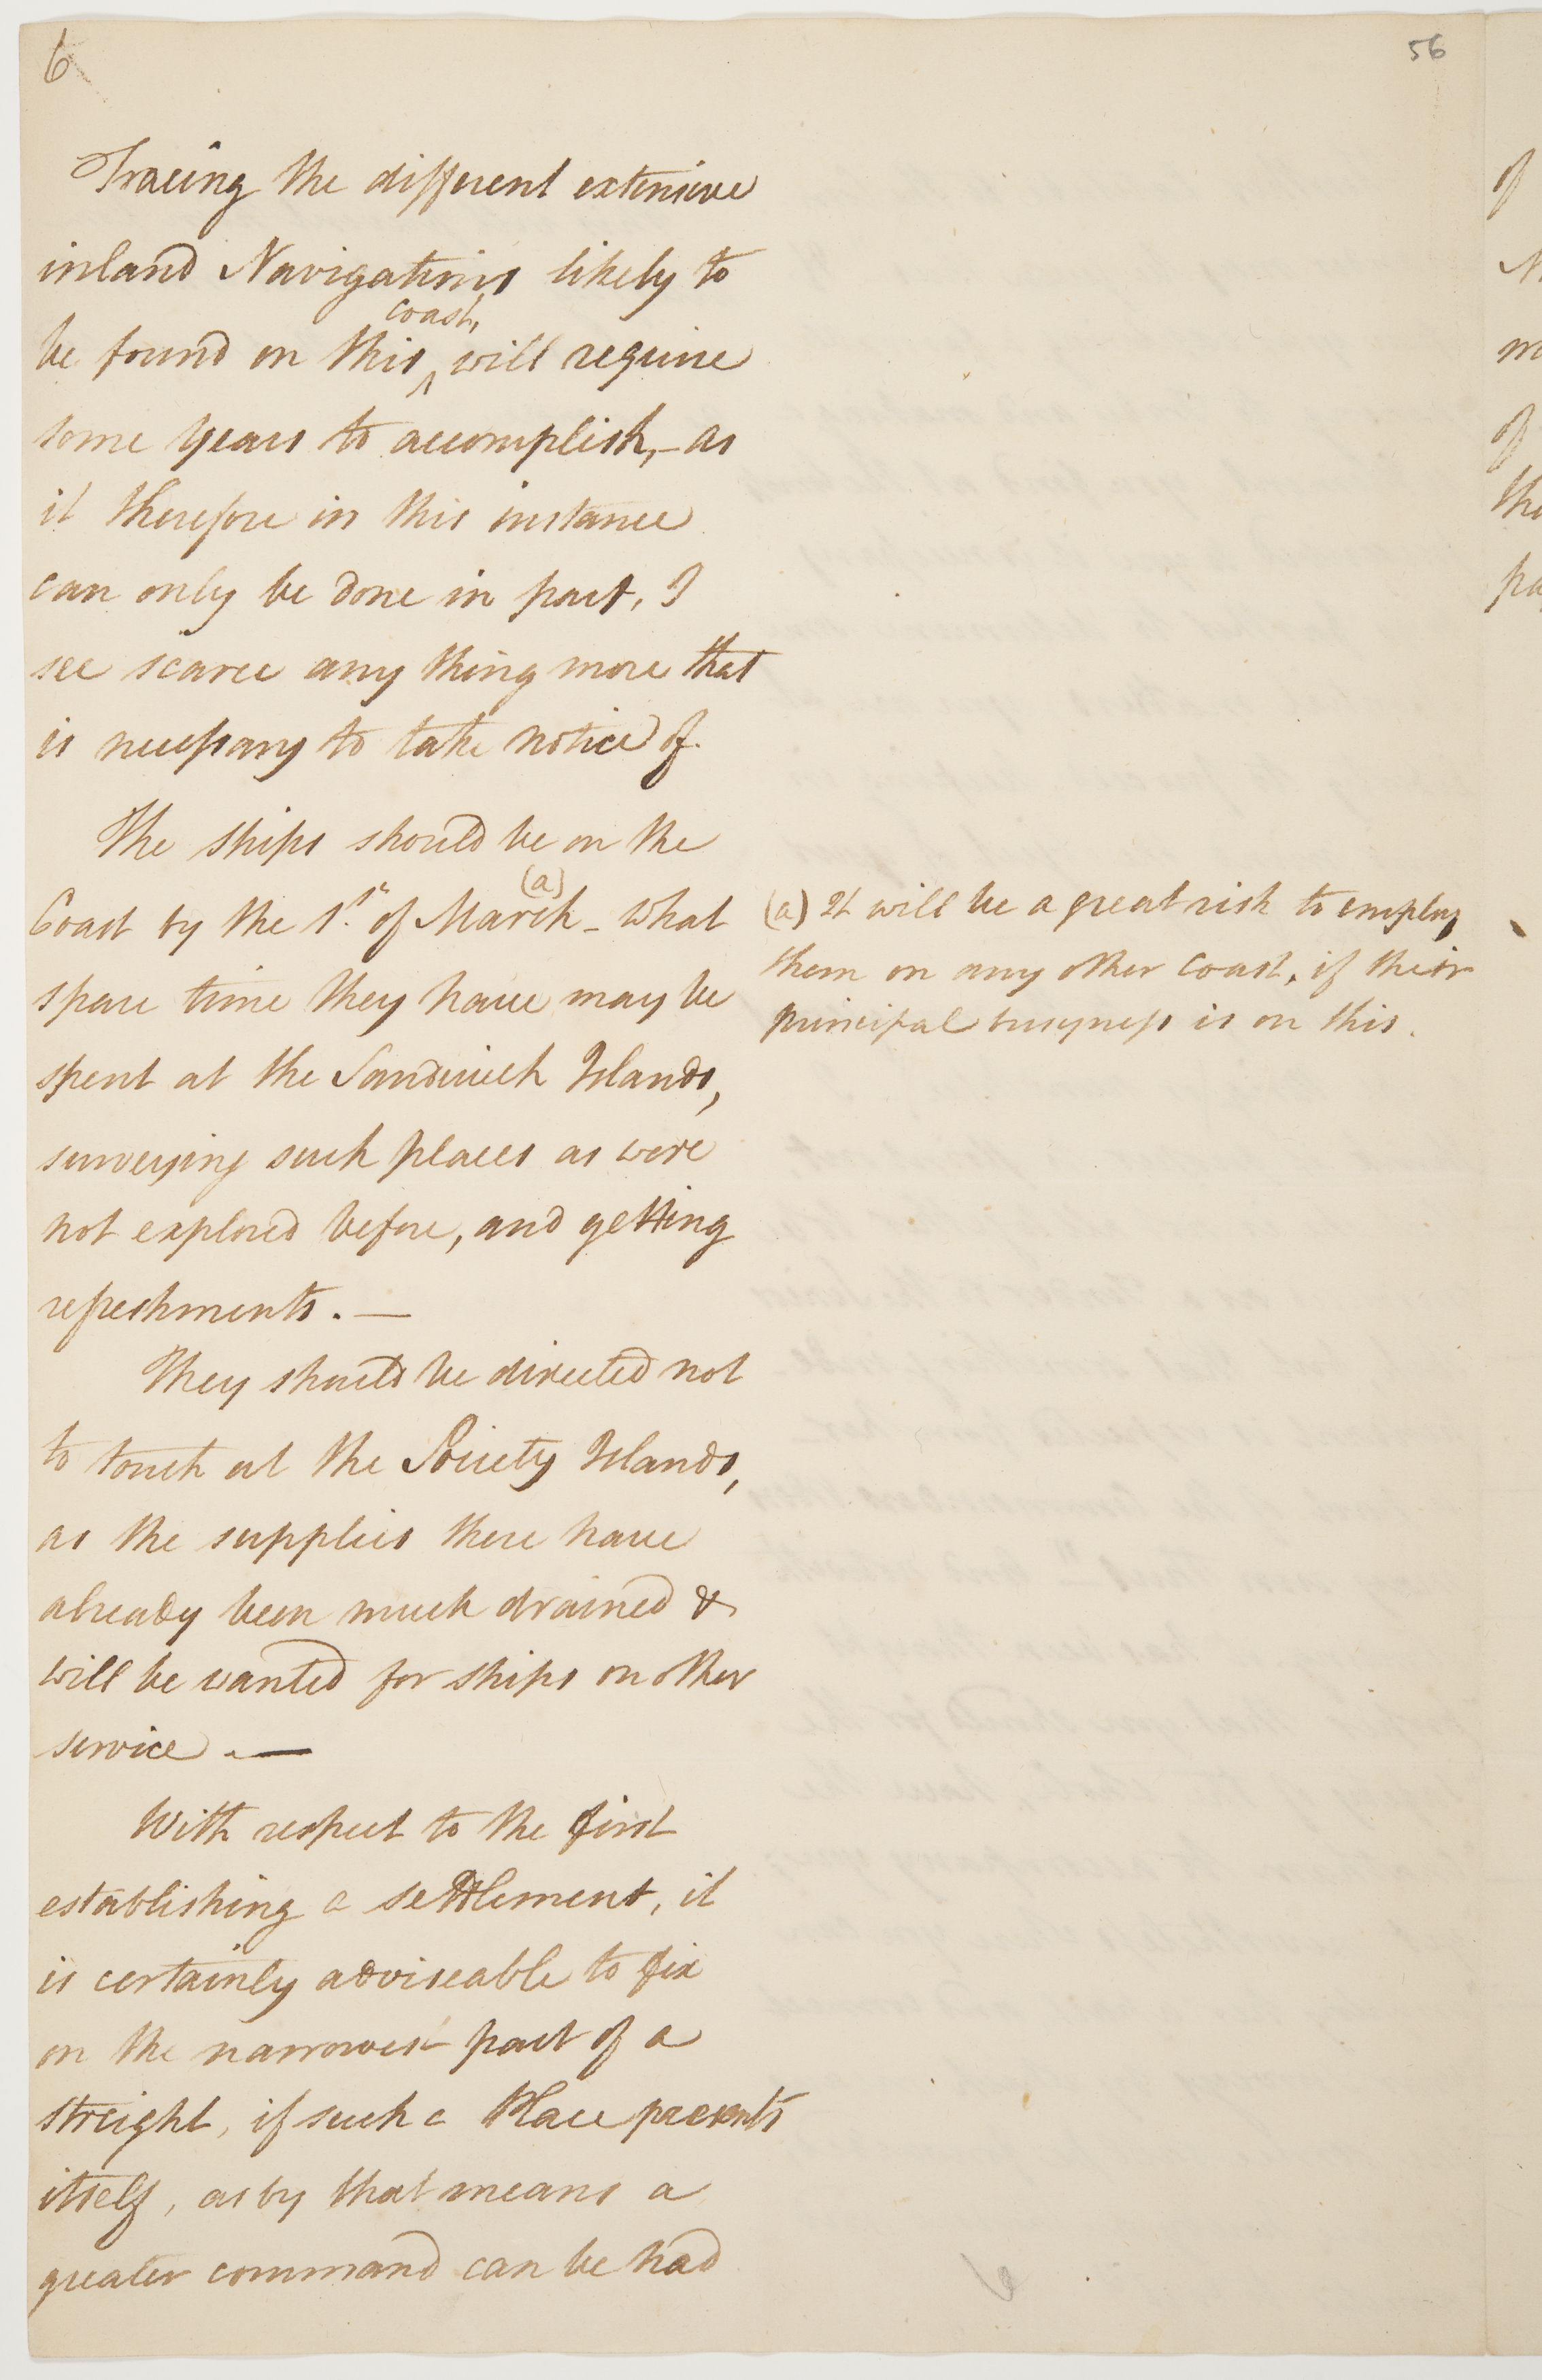 6
56
Tracing the different extensive
inland Navigations likely to
coast,
be found on this ^ will require
some years to accomplish, - as
it therefore in this instance
can only be done in part, I
see scarce any thing more that
is necessary to take notice of.
The ships should be on the
(a)
Coast by the 1st. of March - what
spare time they have may be
spent at the Sandwich Islands,
surveying such places as were
not explored before, and getting
refreshments. —
They should be directed not
to touch at the Society Islands,
as the supplies there have
already been much drained &
will be wanted for ships on other
service. —
With respect to the first
establishing a settlement, it
is certainly adviseable to fix
on the narrowest part of a
streight, if such a Place presents
itself, as by that means a
greater command can be had
(a) It will be a great risk to employ
them on any other coast, if their
principal busyness is on this.
of
of